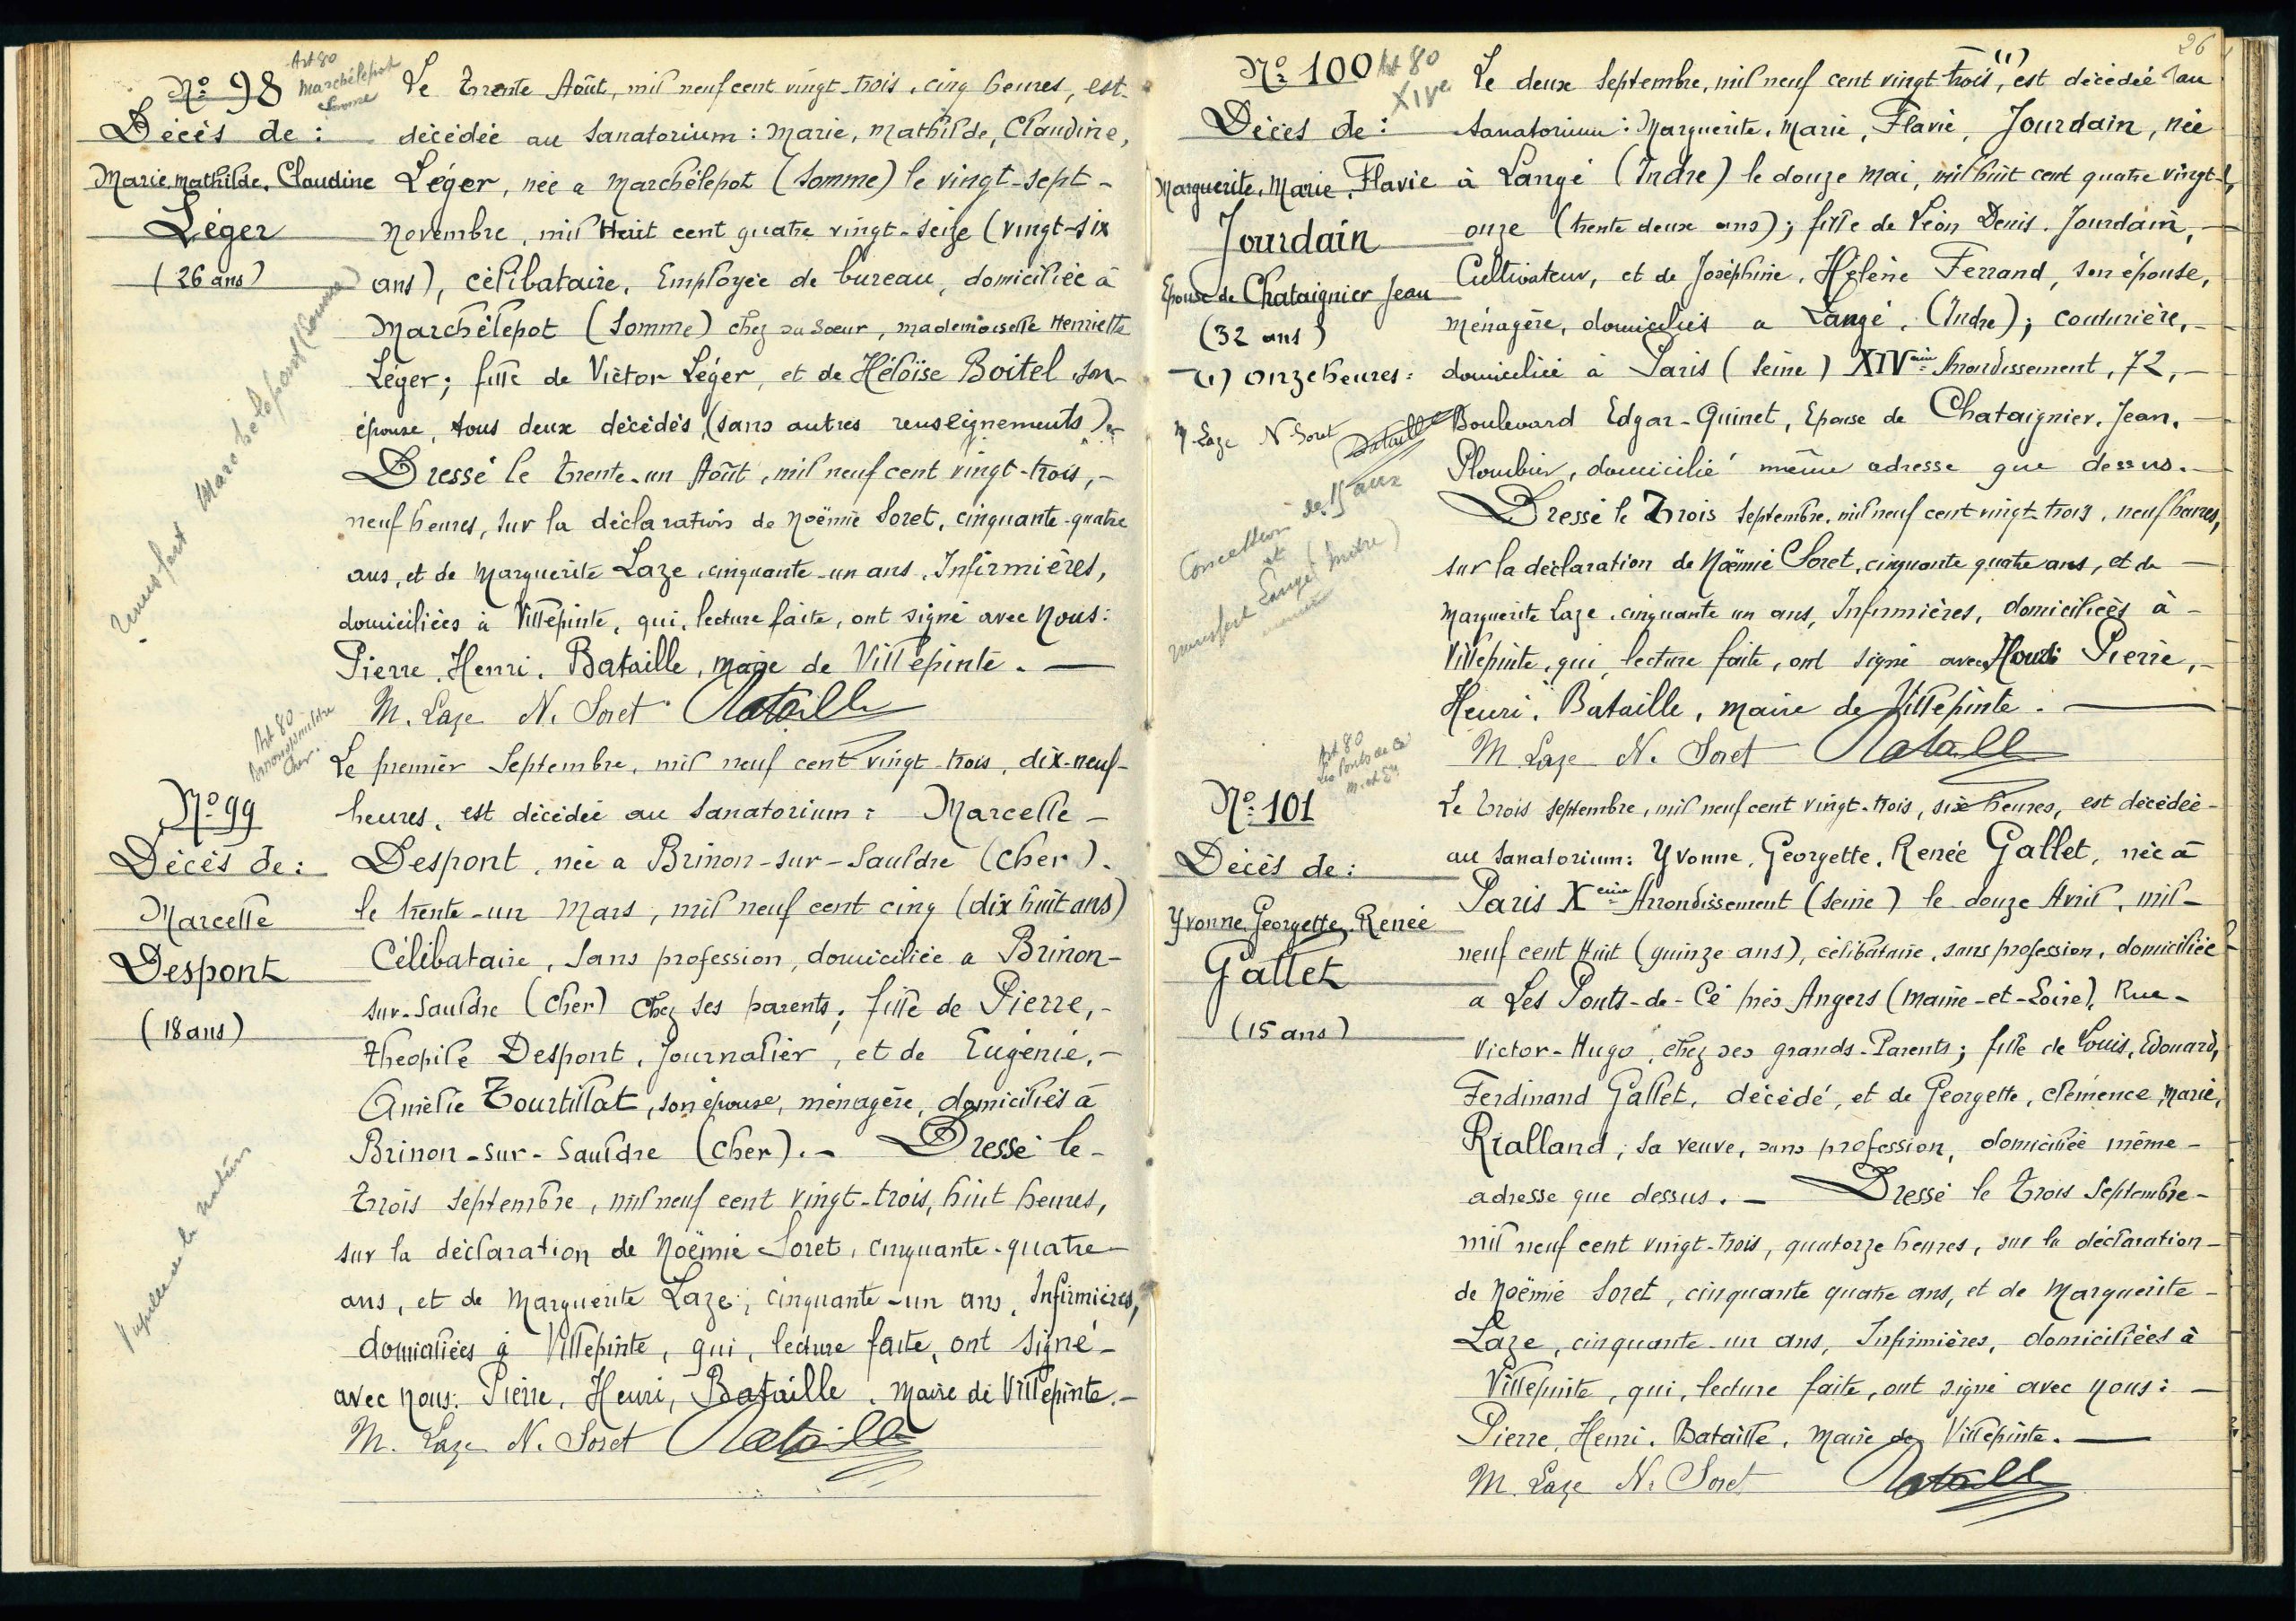 Nº 98
Art 80
Marchélepot
Somme
Décès de :
Marie, Mathilde, Claudine
Léger
(26 ans)
Le trente Août, mil neuf cent vingt-trois, cinq heures, est
décédée au Sanatorium : Marie, Mathilde, Claudine,
Léger, née a Marchélepot (Somme) le vingt-sept -
Novembre, mil Huit cent quatre vingt-seize (vingt-six
ans), célibataire, Employée de bureau, domiciliée à
Marchélepot (Somme) chez sa Soeur, mademoiselle Henriette
Léger; fille de Victor Léger, et de Héloïse Boitel son-
épouse, tous deux décédés, (sans autres renseignements).
Dressé le trente-un Août, mil neuf cent vingt-trois, -
neuf heures, sur la déclaration de Noëmie Soret, cinquante-quatre
ans, et de Marguerite Laze, cinquante-un ans, Infirmières,
domiciliées à Villepinte, qui, lecture faite, ont signé avec Nous:
Pierre, Henri, Bataille, maire de Villepinte. —
M. Laze N. Soret Bataille
Art 80
Cher.
Nº 99
Décès de :
Marcelle
Despont
(18 ans)
Le premier Septembre, mil neuf cent vingt-trois, dix-neuf-
heures, est décédée au Sanatorium : Marcelle -
Despont, née a Brinon-sur-Sauldre (Cher).
le trente-un Mars, mil neuf cent cinq (dix huit ans)
Célibataire, Sans profession, domiciliée a Brinon-
sur-Sauldre (Cher) Chez ses parents; fille de Pierre, -
théophile Despont, Journalier, et de Eugénie, -
Amélie Tourtillat, son épouse, ménagère, domiciliés à
Brinon-sur-Sauldre (Cher). - Dressé le -
trois Septembre, mil neuf cent vingt-trois, huit heures,
sur la déclaration de Noëmie Soret, cinquante-quatre
ans, et de Marguerite Laze, cinquante-un ans, Infirmières,
domiciliées à Villepinte, qui, lecture faite, ont signé -
avec Nous: Pierre, Henri, Bataille, Maire de Villepinte. -
M. Laze N. Soret Bataille
26
Nº 100
Art 80
XIVe
Décès de :
Marguerite, Marie, Flavie
Jourdain
Epouse de Chataignier Jean
(32 ans)
(1) onze heures:
M. Laze N. Soret Bataille
Concession de 15 ans
et
transfert Langé (Indre)
Le deux Septembre, mil neuf cent vingt-trois (1), est décédée au
Sanatorium : Marguerite, Marie, Flavie, Jourdain, née
à Langé (Indre) le douze mai, mil huit cent quatre vingt-
onze (trente deux ans); fille de Léon Denis Jourdain, -
Cultivateur, et de Joséphine, Hélène Ferrand, son épouse,
ménagère, domiciliés a Langé, (Indre); couturière, -
domiciliée à Paris (Seine) XIVème Arrondissement, 72, -
Boulevard Edgar-Quinet, Epouse de Chataignier, Jean, -
Plombier, domicilié même adresse que dessus. -
Dressé le Trois Septembre, mil neuf cent vingt-trois, neuf heures,
sur la déclaration de Noëmie Soret, cinquante quatre ans, et de -
Marguerite Laze, cinquante un ans, Infirmières, domiciliées à -
Villepinte, qui, lecture faite, ont signé avec Nous: Pierre, -
Henri, Bataille, maire de Villepinte. —
M. Laze N. Soret Bataille
Art 80
Les Ponts de Cé
M. et L.
Nº 101
Décès de :
Yvonne, Georgette, Renée
Gallet
(15 ans)
Le trois Septembre, mil neuf cent vingt-trois, six heures, est décédée -
au Sanatorium: Yvonne, Georgette, Renée Gallet, née à
Paris Xème Arrondissement (Seine) le douze Avril, mil -
neuf cent Huit (quinze ans), célibataire, sans profession, domiciliée
a Les Ponts-de-Cé près Angers (Maine-et-Loire), Rue -
Victor-Hugo, chez ses grands-Parents; fille de Louis, Edouard,
Ferdinand Gallet, décédé, et de Georgette, Clémence, Marie,
Rialland, sa veuve, sans profession, domiciliée même -
adresse que dessus. - Dressé le trois Septembre -
mil neuf cent vingt-trois, quatorze heures, sur la déclaration -
de Noëmie Soret, cinquante quatre ans, et de Marguerite -
Laze, cinquante-un ans, Infirmières, domiciliées à
Villepinte, qui, lecture faite, ont signé avec Nous: -
Pierre, Henri, Bataille, Maire de Villepinte. —
M. Laze N. Soret Bataille